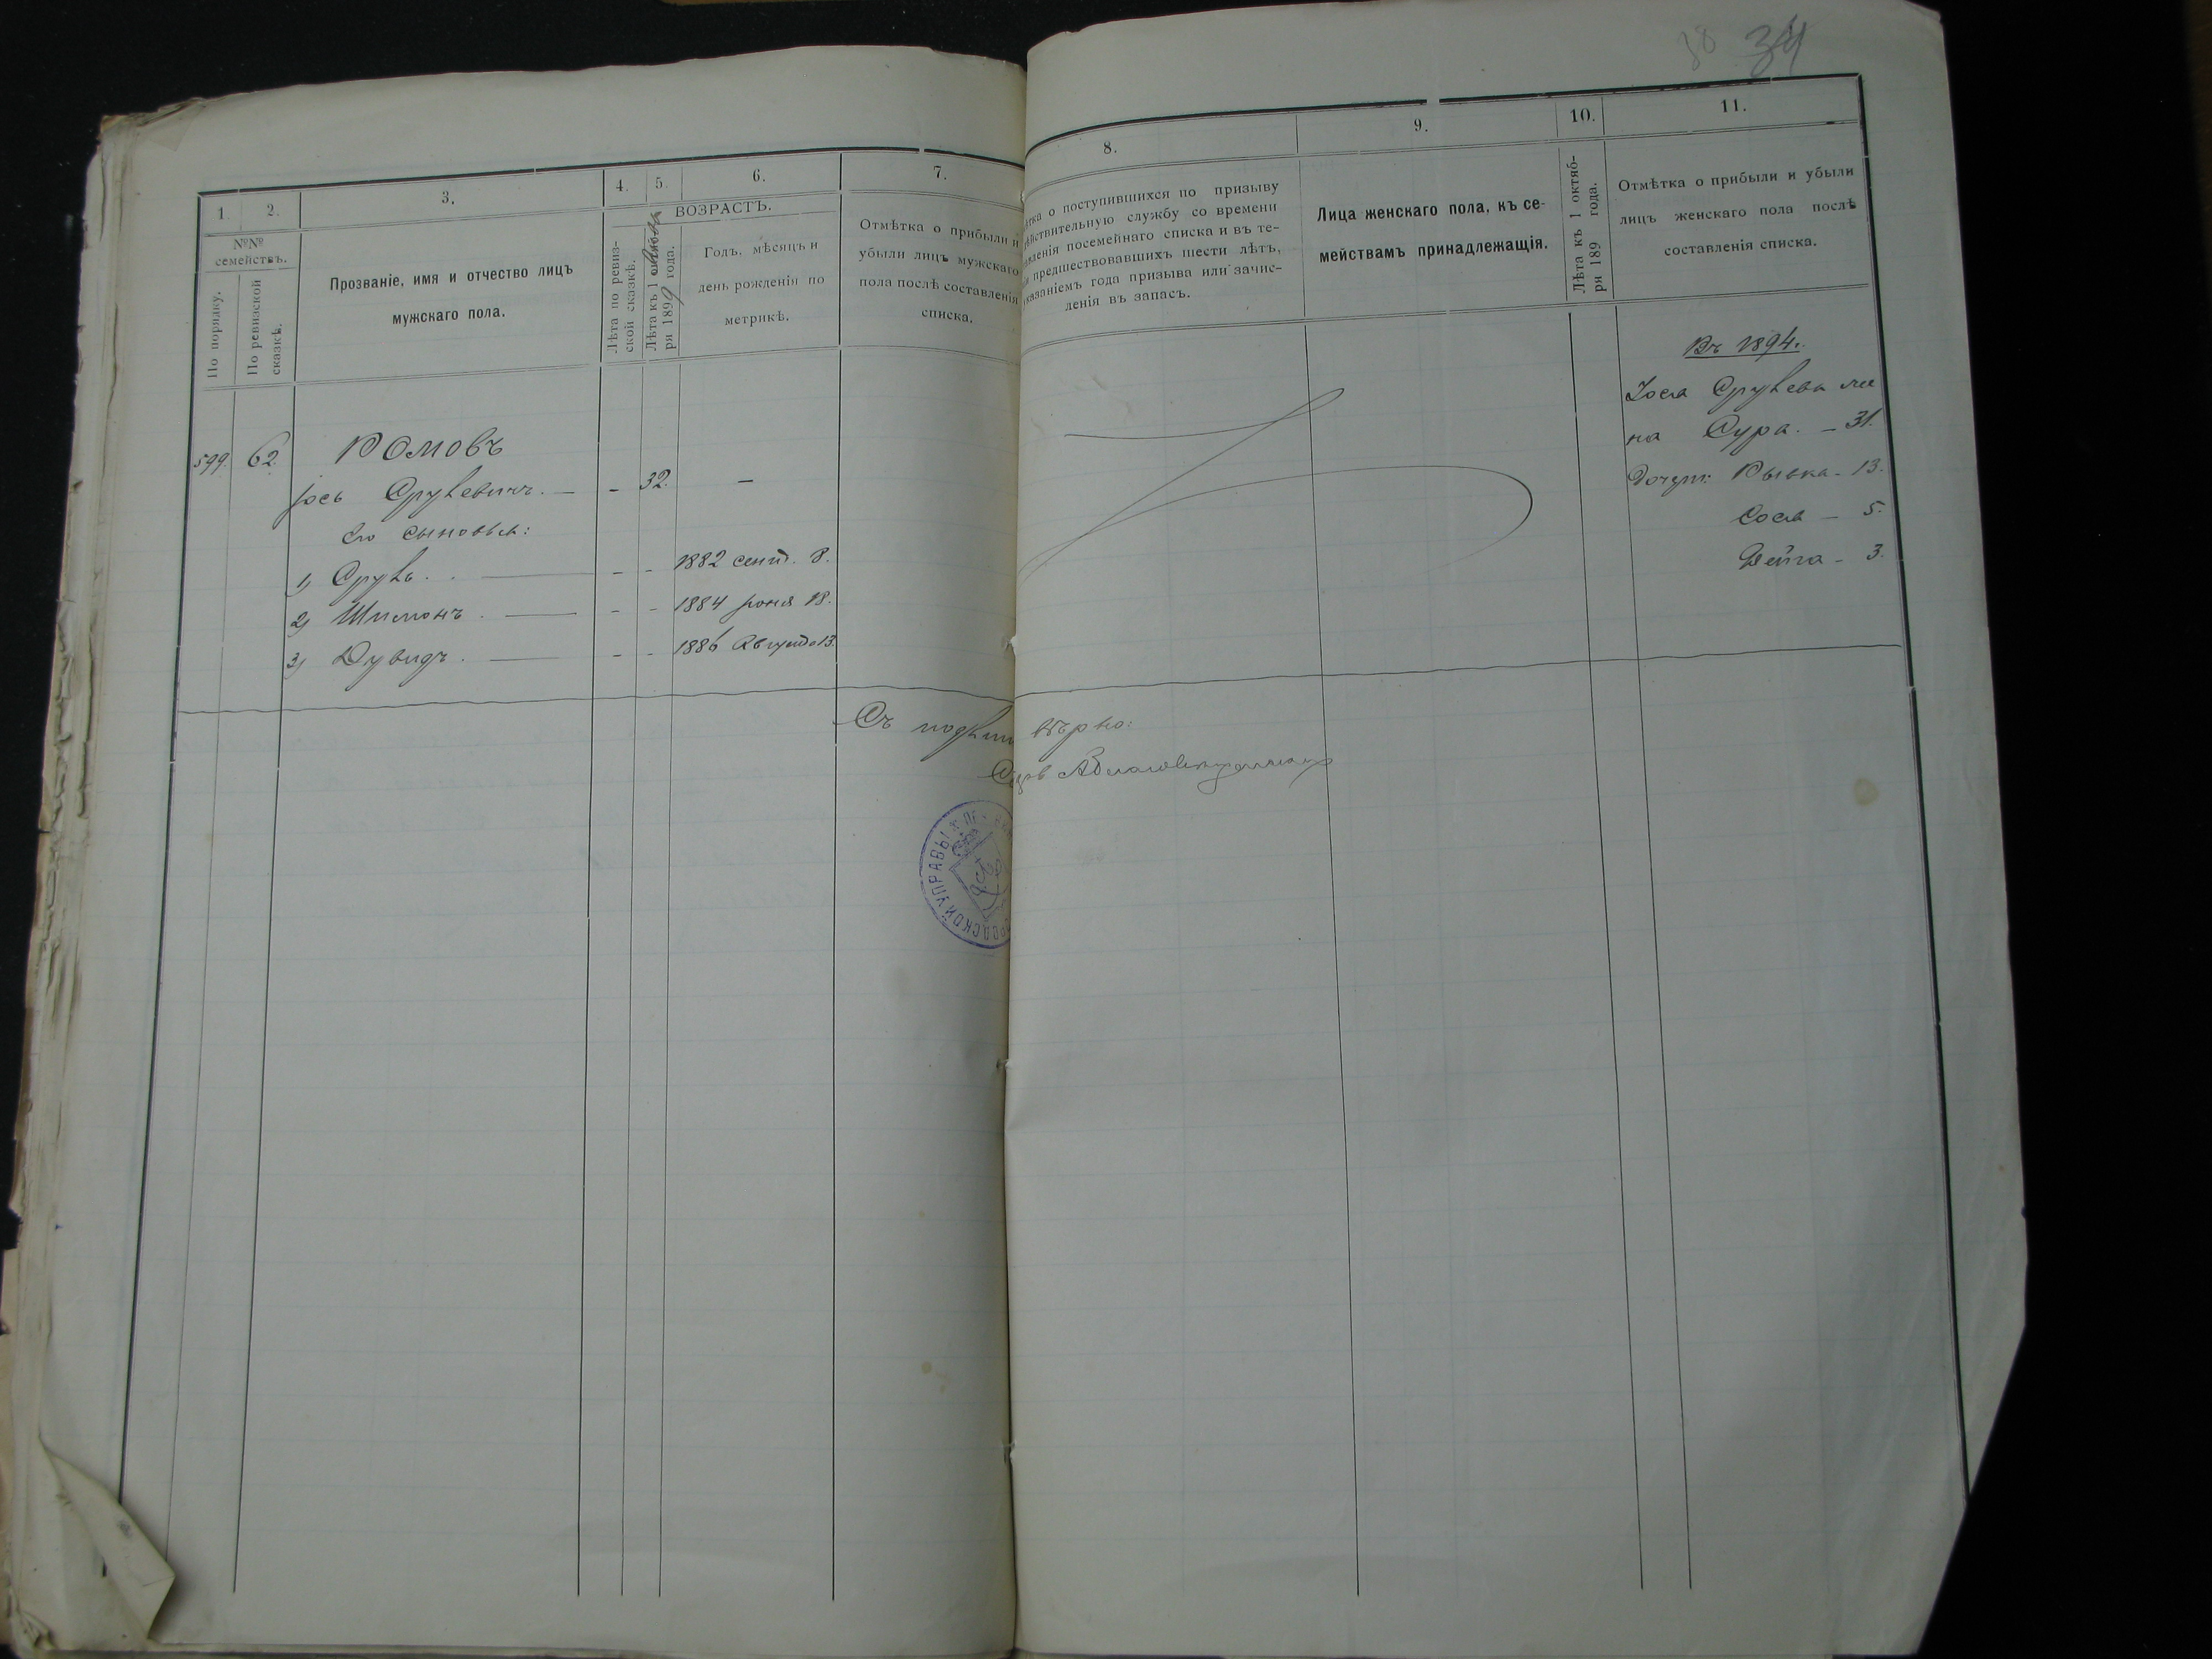 38 34
1.
2.
3.
4.
5.
6.
7.
№№
семействъ.
По порядку.
По ревизской
сказкѣ.
Прозваніе, имя и отчество лицъ
мужскаго пола.
ВОЗРАСТЪ.
Лѣта по ревиз-
ской сказкѣ.
Лѣта къ 1
ря 1899 года.
Годъ, мѣсяцъ и
день рожденія по
метрикѣ.
Отмѣтка о прибыли и
убыли лицъ мужскаго
пола послѣ составленія
списка.
599. 62.
Іось Срулевичъ. — - 32. —
Его сыновья:
1) Сруль. — - - 1882 сент. 8.
2) Шимонъ. — - - 1884 іюня 18.
3) Дувидъ. — - - 1886 Августа 13.
8.
9.
10.
11.
о поступившихся по призыву
службу со времени
посемейнаго списка и въ те-
предшествовавшихъ шести лѣтъ,
года призыва или зачис-
ленія въ запасъ.
Лица женскаго пола, къ се-
мействамъ принадлежащія.
Лѣта къ 1 октяб-
ря 189 года.
Отмѣтка о прибыли и убыли
лицъ женскаго пола послѣ
составленія списка.
Въ 1894 г.
Іося Срулева же
на Сура. — 31.
Дочери: Рывка — 13.
Сося — 5.
Фейга — 3.
Съ вѣрно:
ГОРОДСКОЙ УПРАВЫ